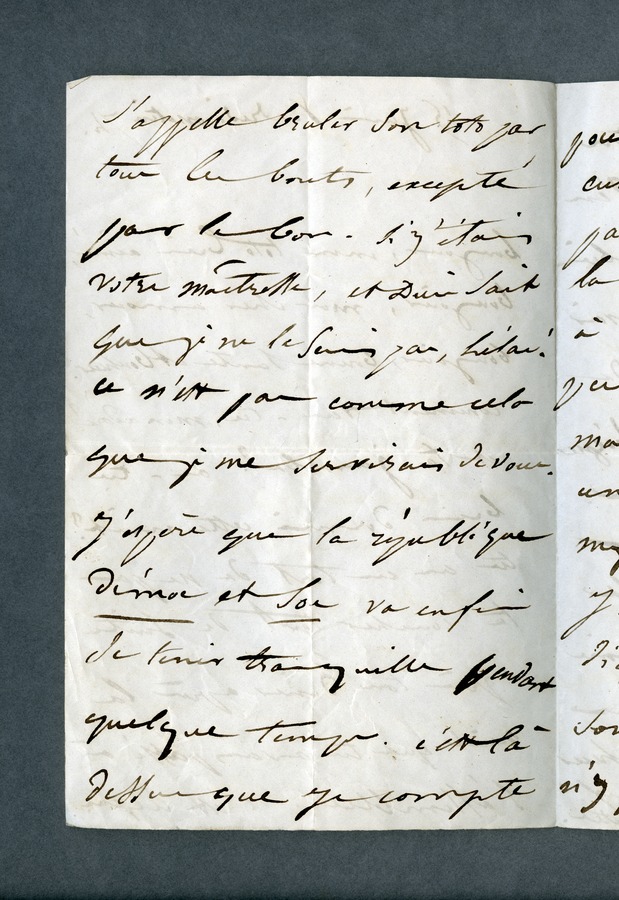 s'appelle bruler son toto par
tous les bouts, excepté
par le bon. Si j'étais
votre maîtresse, et Dieu sait
que je ne le suis pas, hélas!
ce n'est pas comme cela
que je me servirais de vous.
J'espère que la république
démoc et soc va enfin
se tenir tranquille pendant
quelque temps. c'est là
dessus que je compte
la
à
n'y